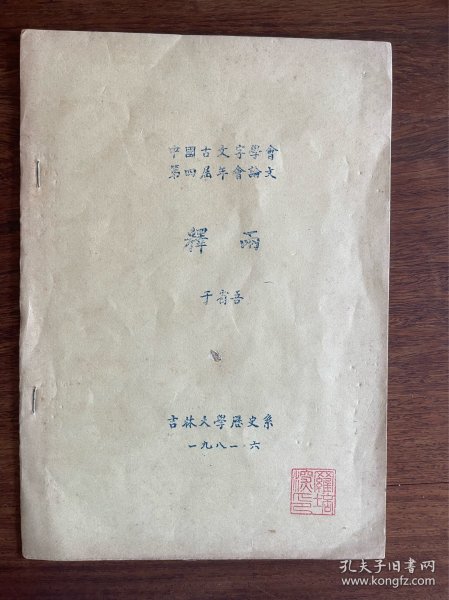 中國古文字學會
第四屆年會論文
釋 兩
于省吾
吉林大學歷史系
一九八一·六
孔夫子旧书网
www.kongfz.com